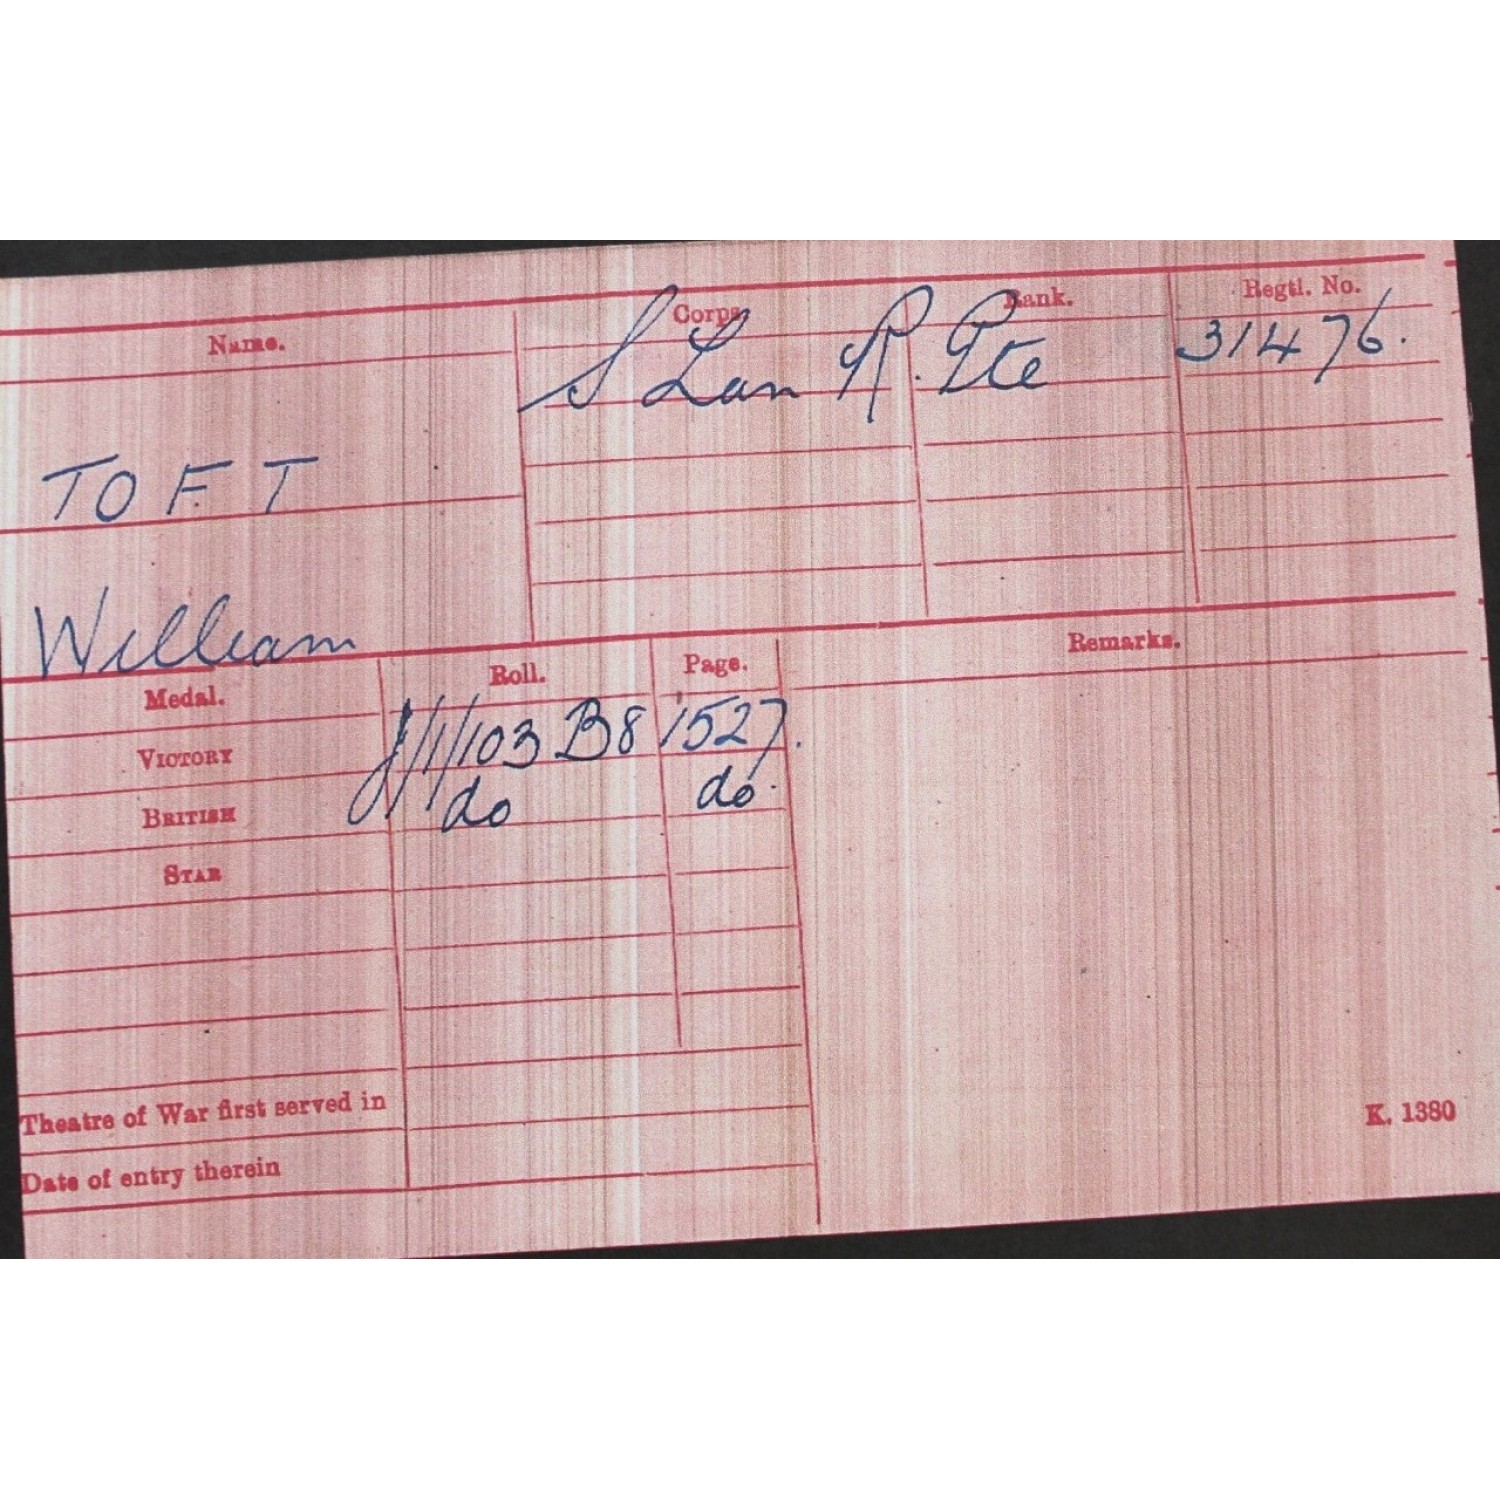 Name. Corps. Rank. Regtl. No.
S Lan R. Pte 31476.
TOFT
William
Medal. Roll. Page. Remarks.
VICTORY J/1/103 B8 1527.
BRITISH do do.
STAR
Theatre of War first served in
K. 1380
Date of entry therein